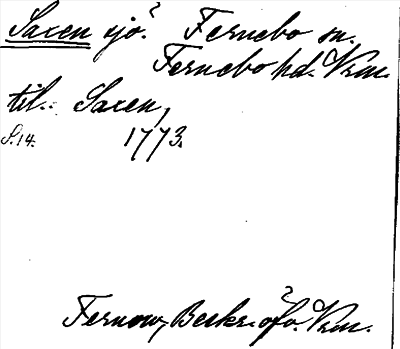 Saxen sjö. Fernebo sn.
Fernebo hd. Vrm.
til.: Saxen,
S. 14. 1773.
Fernow, Beskr. öfv. Vrm.